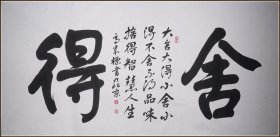 舍
得
大舍大得小舍小
得不舍不得品味
捨得智慧人生
書於北京